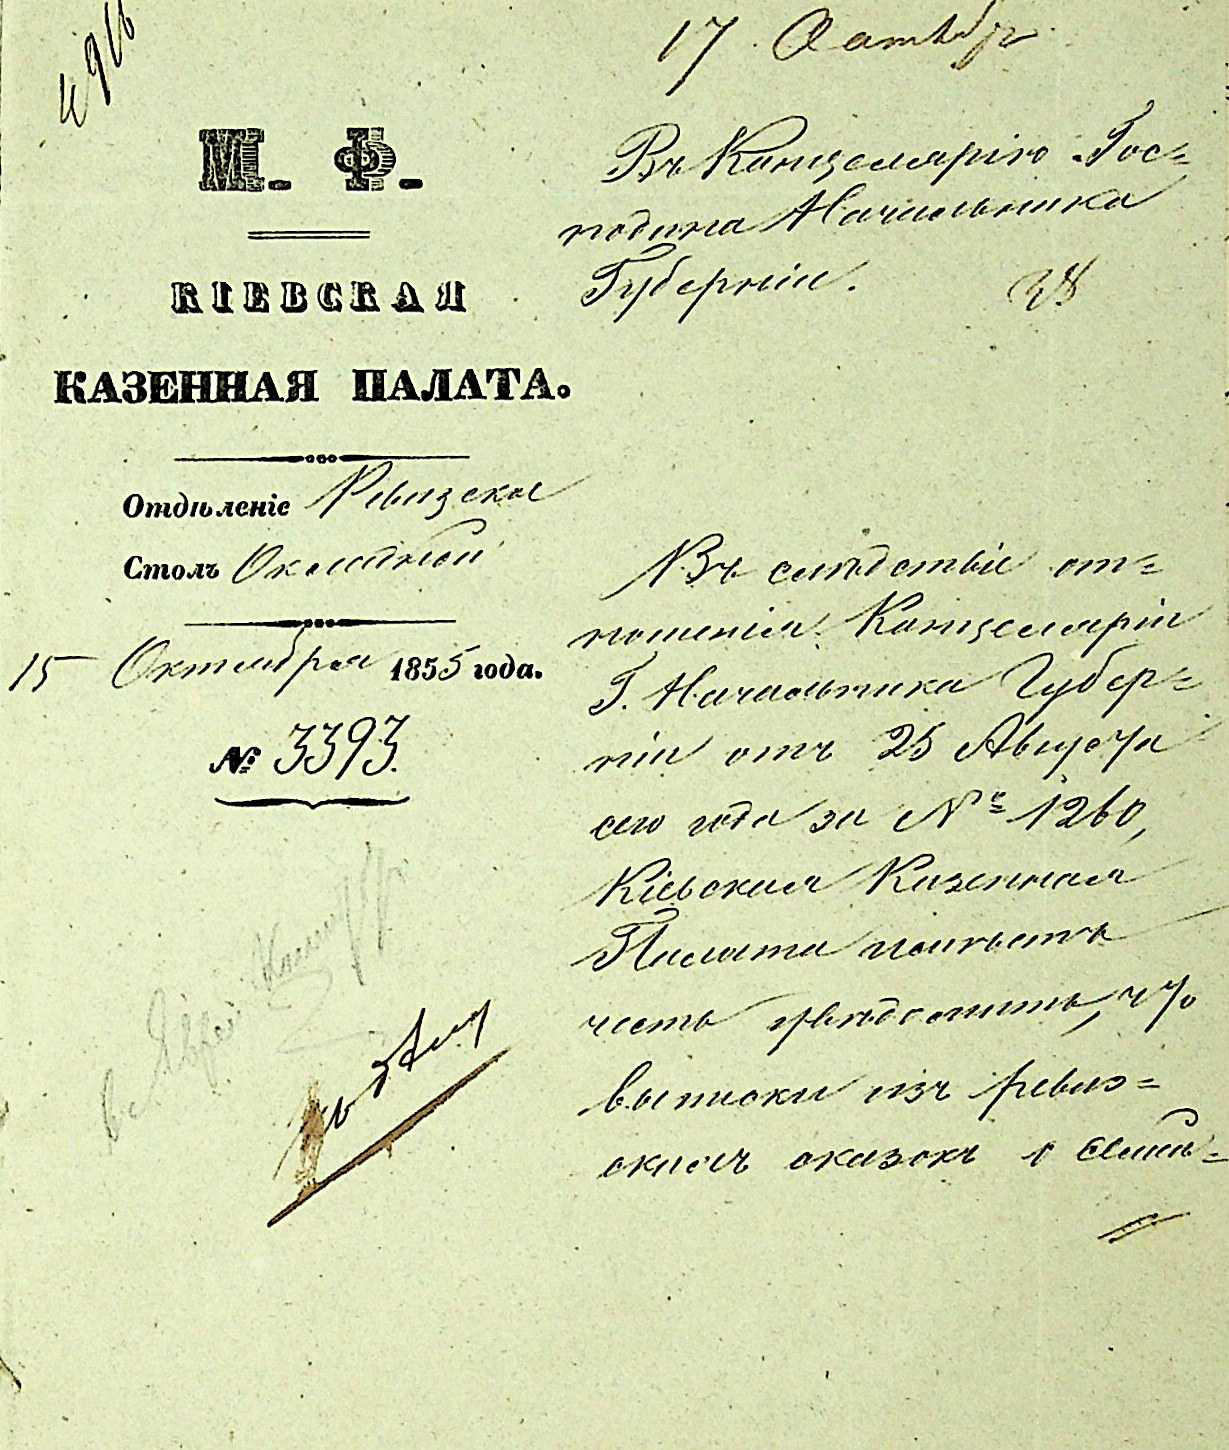 4916
17 Октябр
М. Ф.
КІЕВСКАЯ
КАЗЕННАЯ ПАЛАТА.
Отдѣленіе Ревизское
Столъ Окладной
15 Октября 1855 года.
№ 3393.
Въ Канцелярію Гос=
подина Начальника
Губерніи.
Въ слѣдствіе от=
ношенія Канцеляріи
Г. Начальника Губер=
ніи отъ 25 Августа
сего года за № 1260,
Кіевская Казенная
Палата имѣетъ
честь увѣдомить, что
выписки изъ ревиз=
скихъ сказокъ о семей=